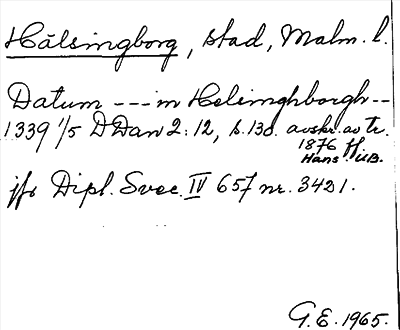 Hälsingborg, stad, Malm. l.
Datum --- in Helsinghborgh --
1339 1/5 DDan 2:12, s. 130. avskr. av tr.
1876
Hans
jfr Dipl. Svec. IV 657 nr. 3421.
G.E. 1965.